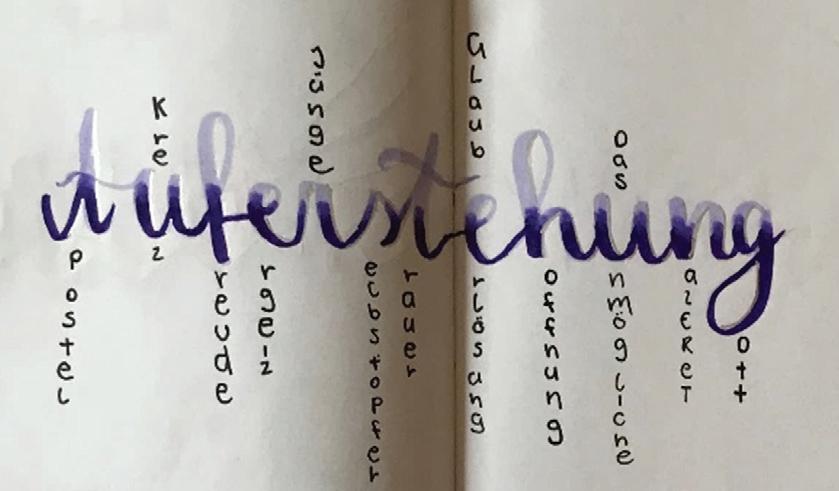 Auferstehung
Apostel
Kreuz
freude
ergeiz
Jünger
selbstopfer
trauer
Glaube
erlösung
hoffnung
Das unmögliche
nazEReT
gott